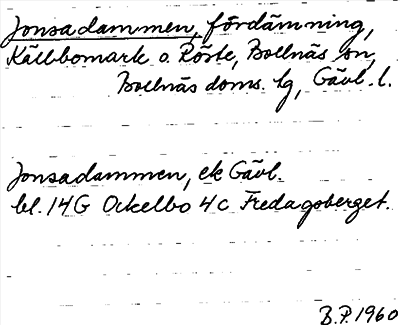 Jonsadammen, fördämning,
Källbomark o. Röste, Bollnäs sn,
Bollnäs doms. hg, Gävl. l.
Jonsadammen, ek Gävl.
bl. 14G Ockelbo 4c Fredagsberget.
B.P. 1960